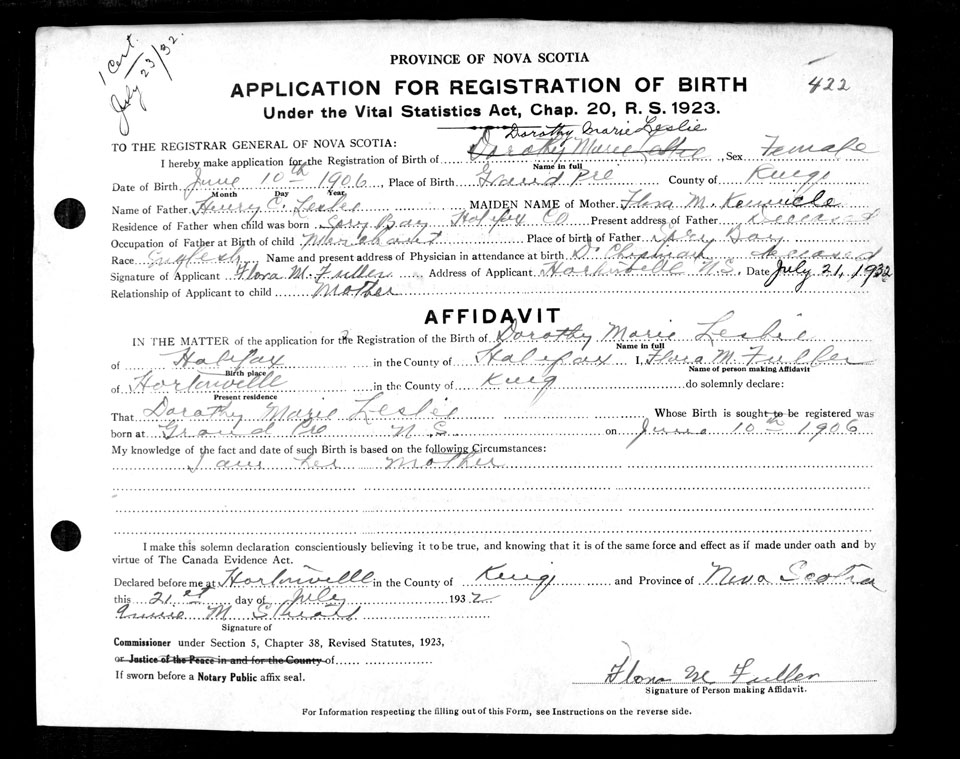 1 Cert.
July 23/32.
PROVINCE OF NOVA SCOTIA
APPLICATION FOR REGISTRATION OF BIRTH
422
Under the Vital Statistics Act, Chap. 20, R. S. 1923.
Dorothy Marie Leslie
TO THE REGISTRAR GENERAL OF NOVA SCOTIA:
I hereby make application for the Registration of Birth of Dorothy Marie Leslie, Sex Female
Name in full
Date of Birth, June 10th 1906, Place of Birth Grand Pré County of Kings
Month Day Year
Name of Father Henry C. Leslie MAIDEN NAME of Mother Flora M.
Residence of Father when child was born Spry Bay Halifax Co Present address of Father deceased
Occupation of Father at Birth of child Merchant Place of birth of Father Spry Bay
Race English Name and present address of Physician in attendance at birth Dr Chipman deceased
Signature of Applicant Flora M. Fuller Address of Applicant Hortonville N.S. Date July 21, 1932
Relationship of Applicant to child Mother
AFFIDAVIT
IN THE MATTER of the application for Registration of the Birth of Dorothy Marie Leslie
Name in full
of Halifax in the County of Halifax I, Flora M. Fuller
Birth place Name of person making Affidavit
of Hortonville in the County of King do solemnly declare:
Present residence
That Dorothy Marie Leslie Whose Birth is sought to be registered was
born at Grand Pre N.S. on June 10th 1906
My knowledge of the fact and date of such Birth is based on the following Circumstances:
I am her Mother
I make this solemn declaration conscientiously believing it to be true, and knowing that it is of the same force and effect as if made under oath and by
virtue of The Canada Evidence Act.
Declared before me at Hortonville in the County of King and Province of Nova Scotia
this 21st day of July 1932
Annie M.
Signature of
Commissioner under Section 5, Chapter 38, Revised Statutes, 1923,
or Justice of the Peace in and for the County of
If sworn before a Notary Public affix seal.
Flora M. Fuller
Signature of Person making Affidavit.
For Information respecting the filling out of this Form, see Instructions on the reverse side.